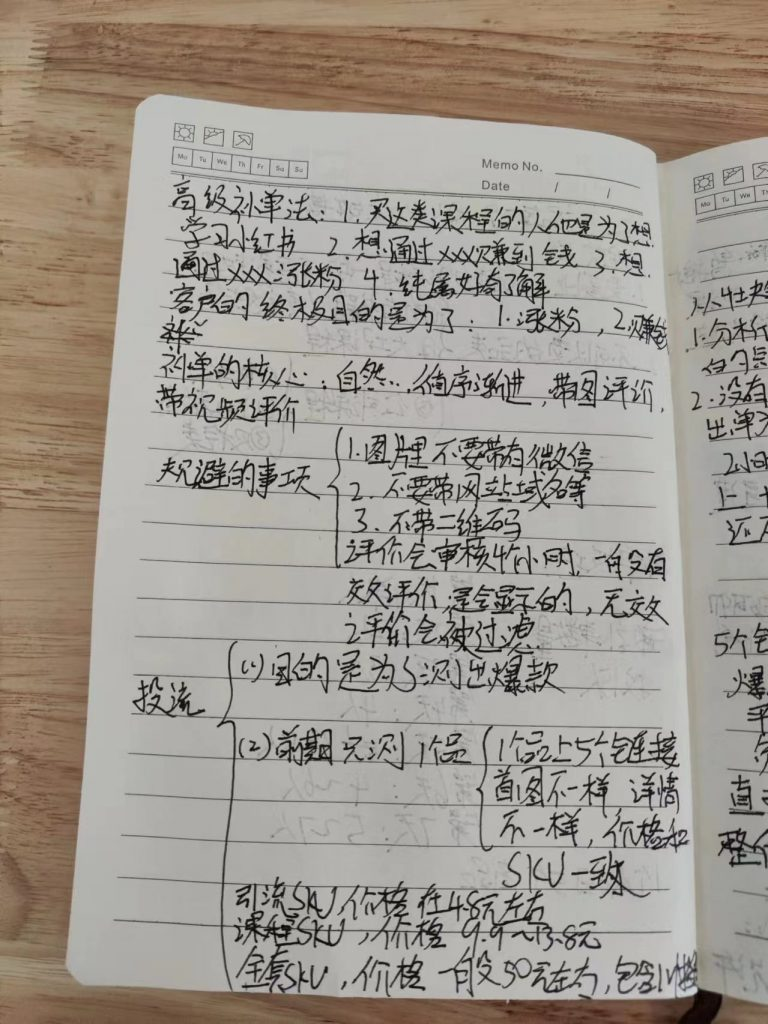 Mo Tu We Th Fr Sa Su
Memo No.
Date / /
高级补单法：1. 买这类课程的人他是为了想
学习小红书 2. 想通过xxx赚到钱 3. 想
通过xxx涨粉 4. 纯属好奇了解
客户的终极目的是为了：1. 涨粉，2. 赚钱
补单的核心：自然，循序渐进，带图评价，
带视频评价
规避的事项
1. 图片里不要带有微信
2. 不要带网站域名等
3. 不带二维码
评价会审核4个小时，一般没有
效评价，是会显示的，无效
评价会被过滤
投流
(1) 目的是为了测出爆款
(2) 前期只测1个品
1个品上5个链接
首图不一样 详情
不一样，价格和
SKU一致
引流SKU，价格在4.8元左右
课程SKU，价格9.9~13.8元
全套SKU，价格一般50元左右，包含
Mo Tu We Th
1. 分析
2. 没有
出单
2小时
5个
爆
平
直
整个